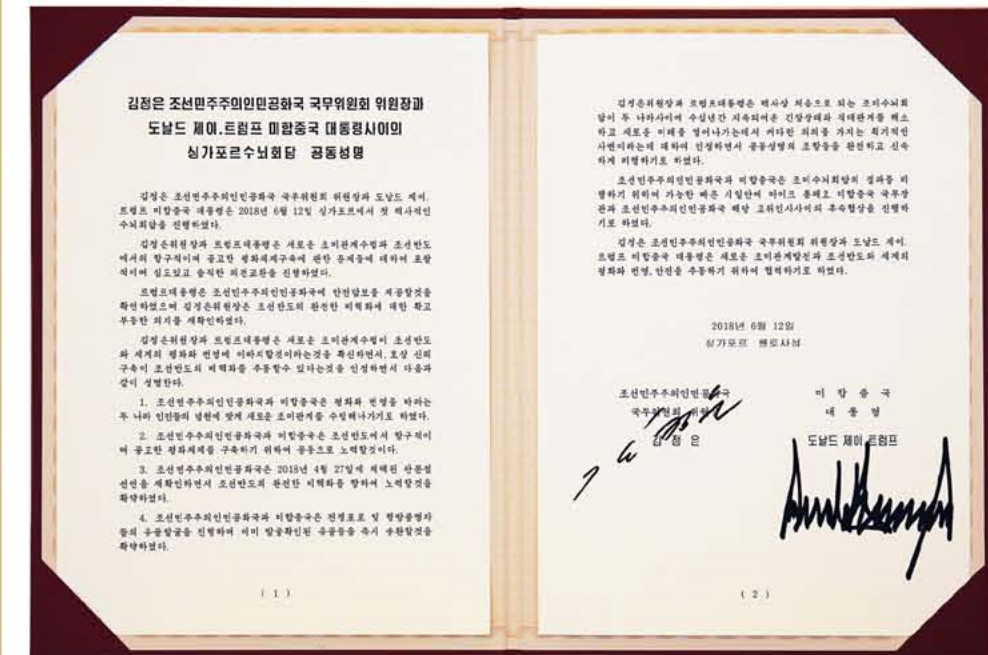 김정은 조선민주주의인민공화국 국무위원회 위원장과
도날드 제이.트럼프 미합중국 대통령사이의
싱가포르수뇌회담 공동성명
김정은 조선민주주의인민공화국 국무위원회 위원장과 도날드 제이.
트럼프 미합중국 대통령은 2018년 6월 12일 싱가포르에서 첫 력사적인
수뇌회담을 진행하였다.
김정은위원장과 트럼프대통령은 새로운 조미관계수립과 조선반도
에서의 항구적이며 공고한 평화체제구축에 관한 문제들에 대하여 포괄
적이며 심도있고 솔직한 의견교환을 진행하였다.
트럼프대통령은 조선민주주의인민공화국에 안전담보를 제공할것을
확언하였으며 김정은위원장은 조선반도의 완전한 비핵화에 대한 확고
부동한 의지를 재확인하였다.
김정은위원장과 트럼프대통령은 새로운 조미관계수립이 조선반도
와 세계의 평화와 번영에 이바지할것이라는것을 확신하면서, 호상 신뢰
구축이 조선반도의 비핵화를 추동할수 있다는것을 인정하면서 다음과
같이 성명한다.
1. 조선민주주의인민공화국과 미합중국은 평화와 번영을 바라는
두 나라 인민들의 념원에 맞게 새로운 조미관계를 수립해나가기로 하였다.
2. 조선민주주의인민공화국과 미합중국은 조선반도에서 항구적이
며 공고한 평화체제를 구축하기 위하여 공동으로 노력할것이다.
3. 조선민주주의인민공화국은 2018년 4월 27일에 채택된 판문점
선언을 재확인하면서 조선반도의 완전한 비핵화를 향하여 노력할것을
확약하였다.
4. 조선민주주의인민공화국과 미합중국은 전쟁포로 및 행방불명자
들의 유골발굴을 진행하며 이미 발굴확인된 유골들을 즉시 송환할것을
확약하였다.
( 1 )
김정은위원장과 트럼프대통령은 력사상 처음으로 되는 조미수뇌회
담이 두 나라사이에 수십년간 지속되여온 긴장상태와 적대관계를 해소
하고 새로운 미래를 열어나가는데서 커다란 의의를 가지는 획기적인
사변이라는데 대하여 인정하면서 공동성명의 조항들을 완전하고 신속
하게 리행하기로 하였다.
조선민주주의인민공화국과 미합중국은 조미수뇌회담의 결과를 리
행하기 위하여 가능한 빠른 시일안에 마이크 폼페오 미합중국 국무장
관과 조선민주주의인민공화국 해당 고위인사사이의 후속협상을 진행하
기로 하였다.
김정은 조선민주주의인민공화국 국무위원회 위원장과 도날드 제이.
트럼프 미합중국 대통령은 새로운 조미관계발전과 조선반도와 세계의
평화와 번영, 안전을 추동하기 위하여 협력하기로 하였다.
2018년 6월 12일
싱가포르 쎈토사섬
조선민주주의인민공화국
국무위원회 위원장
김 정 은
미 합 중 국
대 통 령
도날드 제이 트럼프
( 2 )